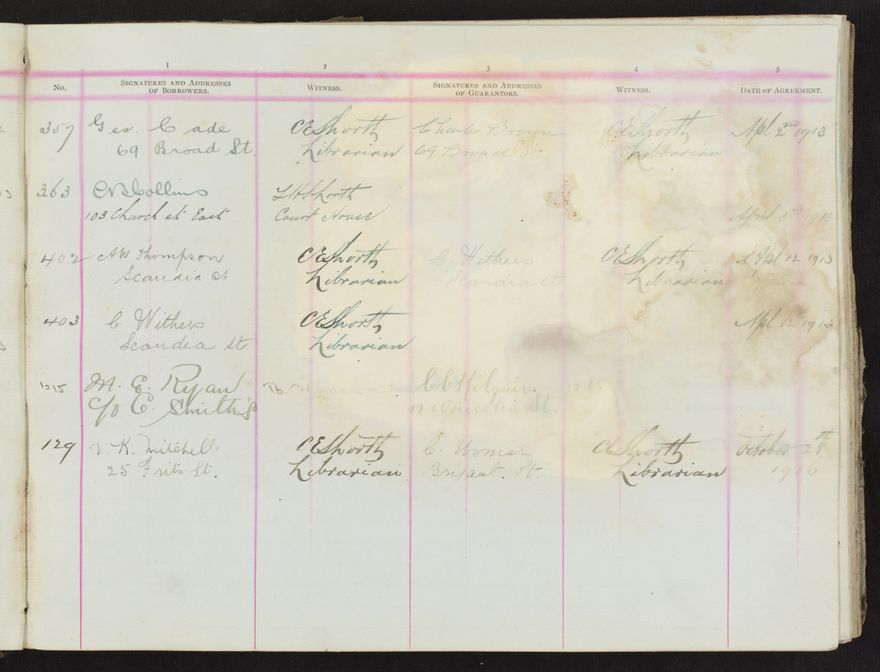 1 2 3 4 5
No. SIGNATURES AND ADDRESSES OF BORROWERS. WITNESS. SIGNATURES AND ADDRESSES OF GUARANTORS. WITNESS. DATE OF AGREEMENT.
357 Geo. Cade CEShorth Charles Brown CEShorth Apl 2nd 1913
69 Broad St. Librarian 69 Broad St Librarian
363 Collins
103 Church St East Court House April 3rd 1913
402 AW Thompson CEShorth C. Withers CEShorth Apl 12 1913
Scandia St Librarian Scandia St Librarian
403 C Withers CEShorth Apl 12 1913
Scandia St Librarian
615 M. E. Ryan
c/o E. Smith's St.
129 V. K. Mitchell CEShorth C. CEShorth October 28th
25 St. Librarian Bryant. St. Librarian 1910